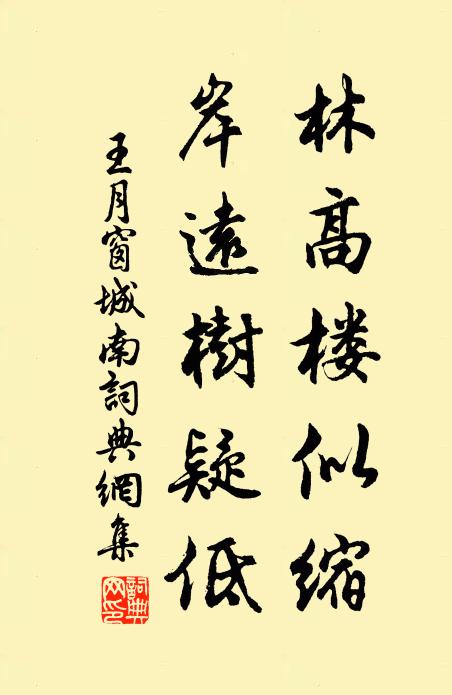 林高楼似缩
岸遠樹疑低
王月窗城南詞典網集
詞典網印